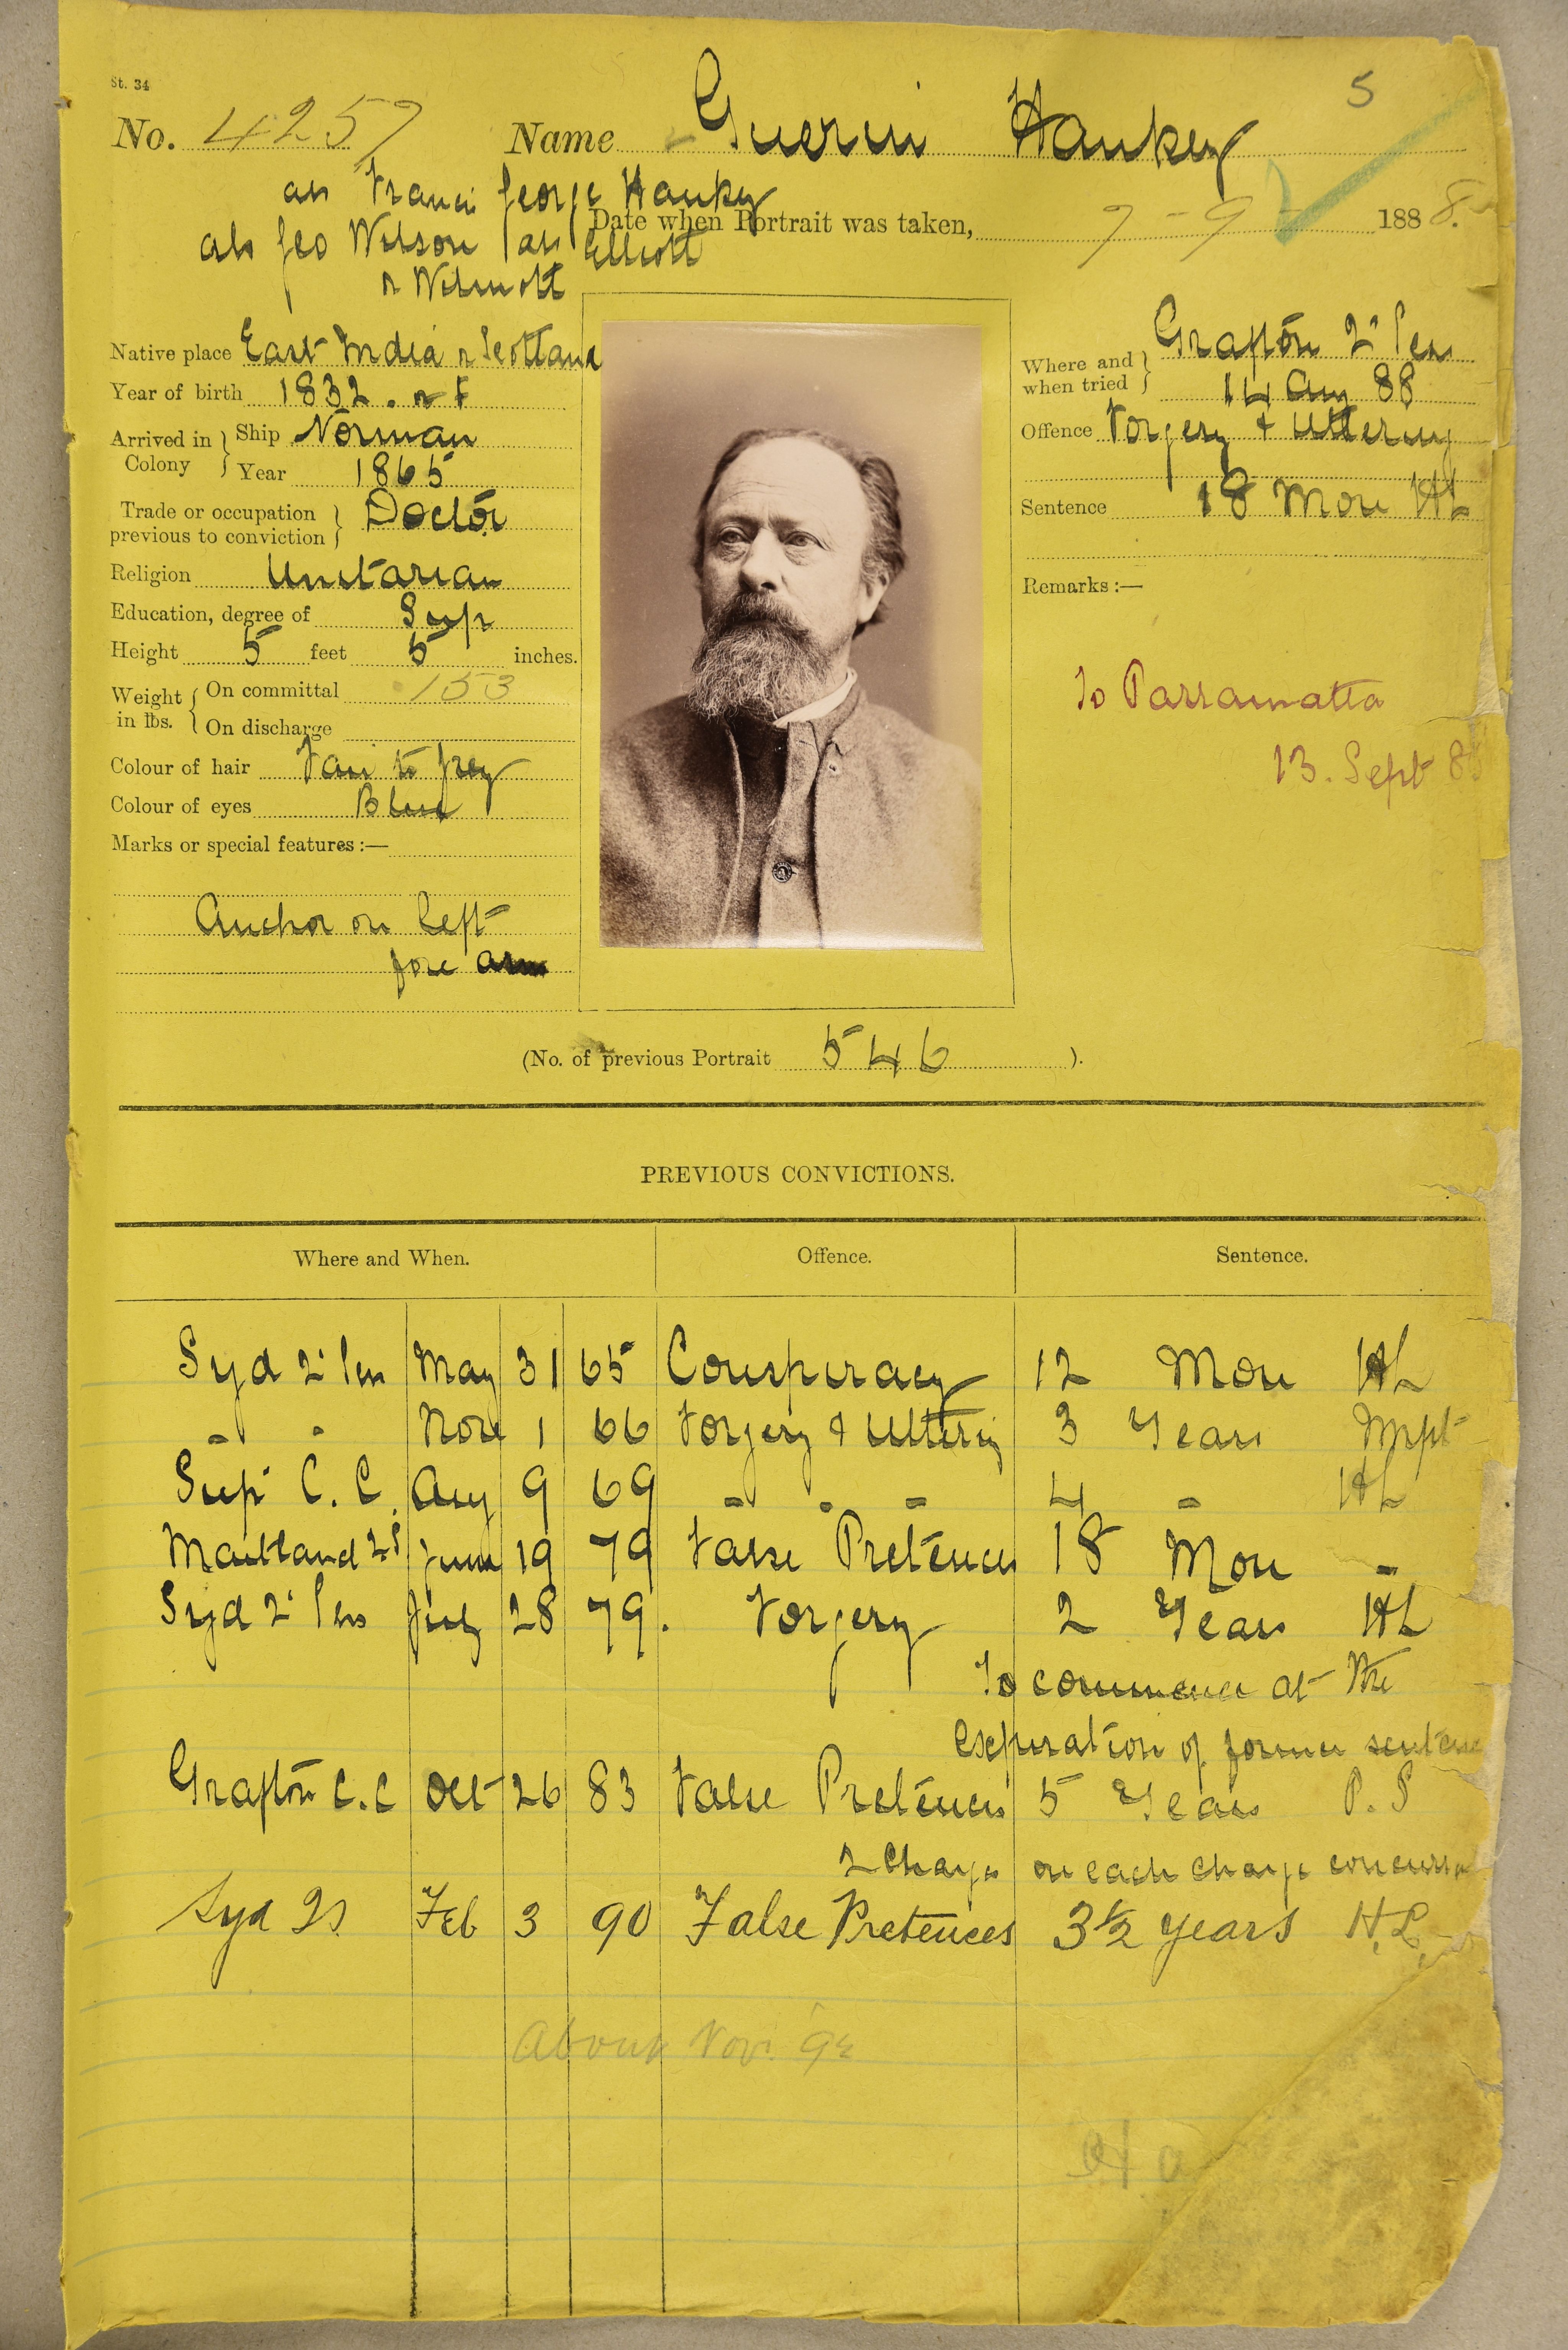 St. 34
5
No. 4257 Name Guerin Hankey
als Francis George Hankey
Date when Portrait was taken, 7-9- 1888.
als Geo Wilson als Elliott
or Wilmott
Native place East India or Scotland
Year of birth 1832
Arrived in Colony } Ship Norman
Year 1865
Trade or occupation previous to conviction } Doctor
Religion Unitarian
Education, degree of Supr
Height 5 feet 5 inches.
Weight in lbs. { On committal 153
On discharge
Colour of hair Fair to grey
Colour of eyes Blue
Marks or special features :—
Anchor on left
fore arm
Where and when tried } Grafton 2 Sess
14 Aug 88
Offence Forgery & Uttering
Sentence 18 Mon HL
Remarks :—
To Parramatta
13. Sept 88
(No. of previous Portrait 546 ).
PREVIOUS CONVICTIONS.
Where and When. Offence. Sentence.
Syd 2 Sess May 31 65 Conspiracy 12 Mon HL
" " Nov 1 66 Forgery & Uttering 3 Years Impt
Sup C. C. Aug 9 69 " " " 4 " HL
Maitland 2S June 19 79 False Pretences 18 Mon "
Syd 2 Sess July 28 79. Forgery 2 Years HL
To commence at the
expiration of former sentence
Grafton C.C Oct 26 83 False Pretences 5 Years P.S
2 Charges on each charge
Syd 2S Feb 3 90 False Pretences 3½ years H.L.
About Nov. 92